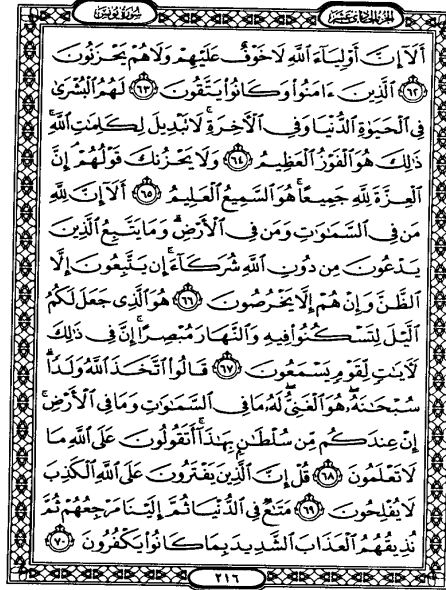 سورة يونس
الجزء الحادي عشر
أَلَآ إِنَّ أَوْلِيَآءَ ٱللَّهِ لَا خَوْفٌ عَلَيْهِمْ وَلَا هُمْ يَحْزَنُونَ
٦٢ ٱلَّذِينَ ءَامَنُوا۟ وَكَانُوا۟ يَتَّقُونَ ٦٣ لَهُمُ ٱلْبُشْرَىٰ
فِى ٱلْحَيَوٰةِ ٱلدُّنْيَا وَفِى ٱلْأَخِرَةِ ۚ لَا تَبْدِيلَ لِكَلِمَٰتِ ٱللَّهِ ۚ
ذَٰلِكَ هُوَ ٱلْفَوْزُ ٱلْعَظِيمُ ٦٤ وَلَا يَحْزُنكَ قَوْلُهُمْ ۘ إِنَّ
ٱلْعِزَّةَ لِلَّهِ جَمِيعًا ۚ هُوَ ٱلسَّمِيعُ ٱلْعَلِيمُ ٦٥ أَلَآ إِنَّ لِلَّهِ
مَن فِى ٱلسَّمَٰوَٰتِ وَمَن فِى ٱلْأَرْضِ ۗ وَمَا يَتَّبِعُ ٱلَّذِينَ
يَدْعُونَ مِن دُونِ ٱللَّهِ شُرَكَآءَ ۚ إِن يَتَّبِعُونَ إِلَّا
ٱلظَّنَّ وَإِنْ هُمْ إِلَّا يَخْرُصُونَ ٦٦ هُوَ ٱلَّذِى جَعَلَ لَكُمُ
ٱلَّيْلَ لِتَسْكُنُوا۟ فِيهِ وَٱلنَّهَارَ مُبْصِرًا ۚ إِنَّ فِى ذَٰلِكَ
لَأَيَٰتٍ لِّقَوْمٍ يَسْمَعُونَ ٦٧ قَالُوا۟ ٱتَّخَذَ ٱللَّهُ وَلَدًا ۗ
سُبْحَٰنَهُۥ ۖ هُوَ ٱلْغَنِىُّ ۖ لَهُۥ مَا فِى ٱلسَّمَٰوَٰتِ وَمَا فِى ٱلْأَرْضِ ۚ
إِنْ عِندَكُم مِّن سُلْطَٰنٍۭ بِهَٰذَآ ۚ أَتَقُولُونَ عَلَى ٱللَّهِ مَا
لَا تَعْلَمُونَ ٦٨ قُلْ إِنَّ ٱلَّذِينَ يَفْتَرُونَ عَلَى ٱللَّهِ ٱلْكَذِبَ
لَا يُفْلِحُونَ ٦٩ مَتَٰعٌ فِى ٱلدُّنْيَا ثُمَّ إِلَيْنَا مَرْجِعُهُمْ ثُمَّ
نُذِيقُهُمُ ٱلْعَذَابَ ٱلشَّدِيدَ بِمَا كَانُوا۟ يَكْفُرُونَ ٧٠
٢١٦